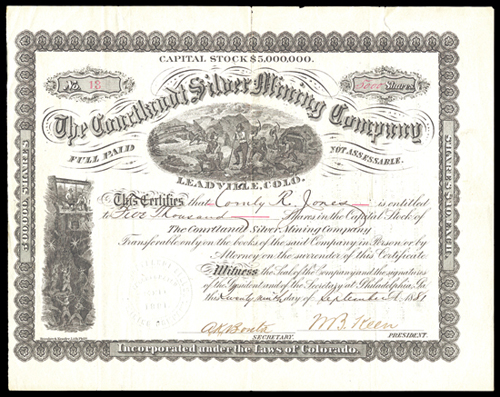 CAPITAL STOCK $5,000,000.
No. 18
Shares
The Courtlandt Silver Mining Company
FULL PAID
NOT ASSESSABLE.
LEADVILLE, COLO.
This Certifies that Comly R. Jones is entitled
to Five Thousand Shares in the Capital Stock of
The Courtlandt Silver Mining Company
Transferable only on the books of the said Company in Person or by
Attorney on the surrender of this Certificate
Witness, the Seal of the Company and the signatures
of the President and of the Secretary at Philadelphia, Pa
this Twenty ninth day of September A.D. 1881
W. B. Keen
SECRETARY.
PRESIDENT.
Incorporated under the Laws of Colorado.